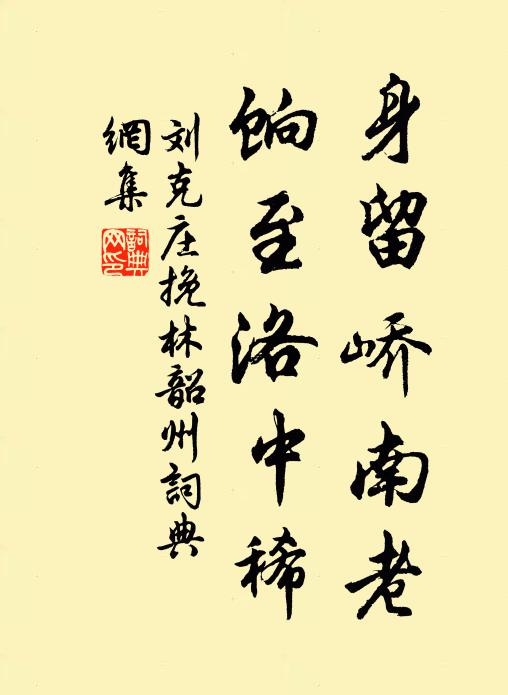 身留峤南老
饷至洛中稀
刘克庄挽林韶州詞典
網集
詞典网印